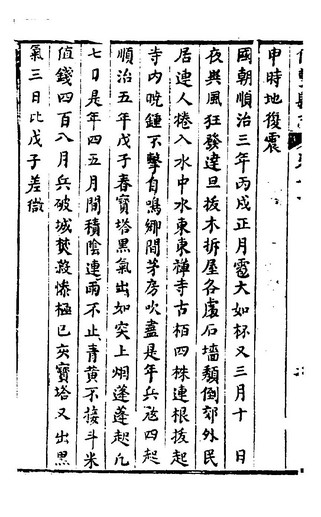 申時地復震
國朝順治三年丙戌正月雹大如杯又三月十日
夜與風狂發達旦拔木折屋各處石墻頹倒郊外民
居連人捲入水中水東東禅寺古栢四株連根拔起
寺内晚鍾不擊自鳴鄉間茅房吹盡是年兵寇四起
順治五年戊子春寳塔黑氣出如突上烟蓬蓬起凢
七日是年四五月間積陰連雨不止青黄不接斗米
值錢四百八月兵破城焚殺慘極已亥寳塔又出黑
氣三日比戊子差微